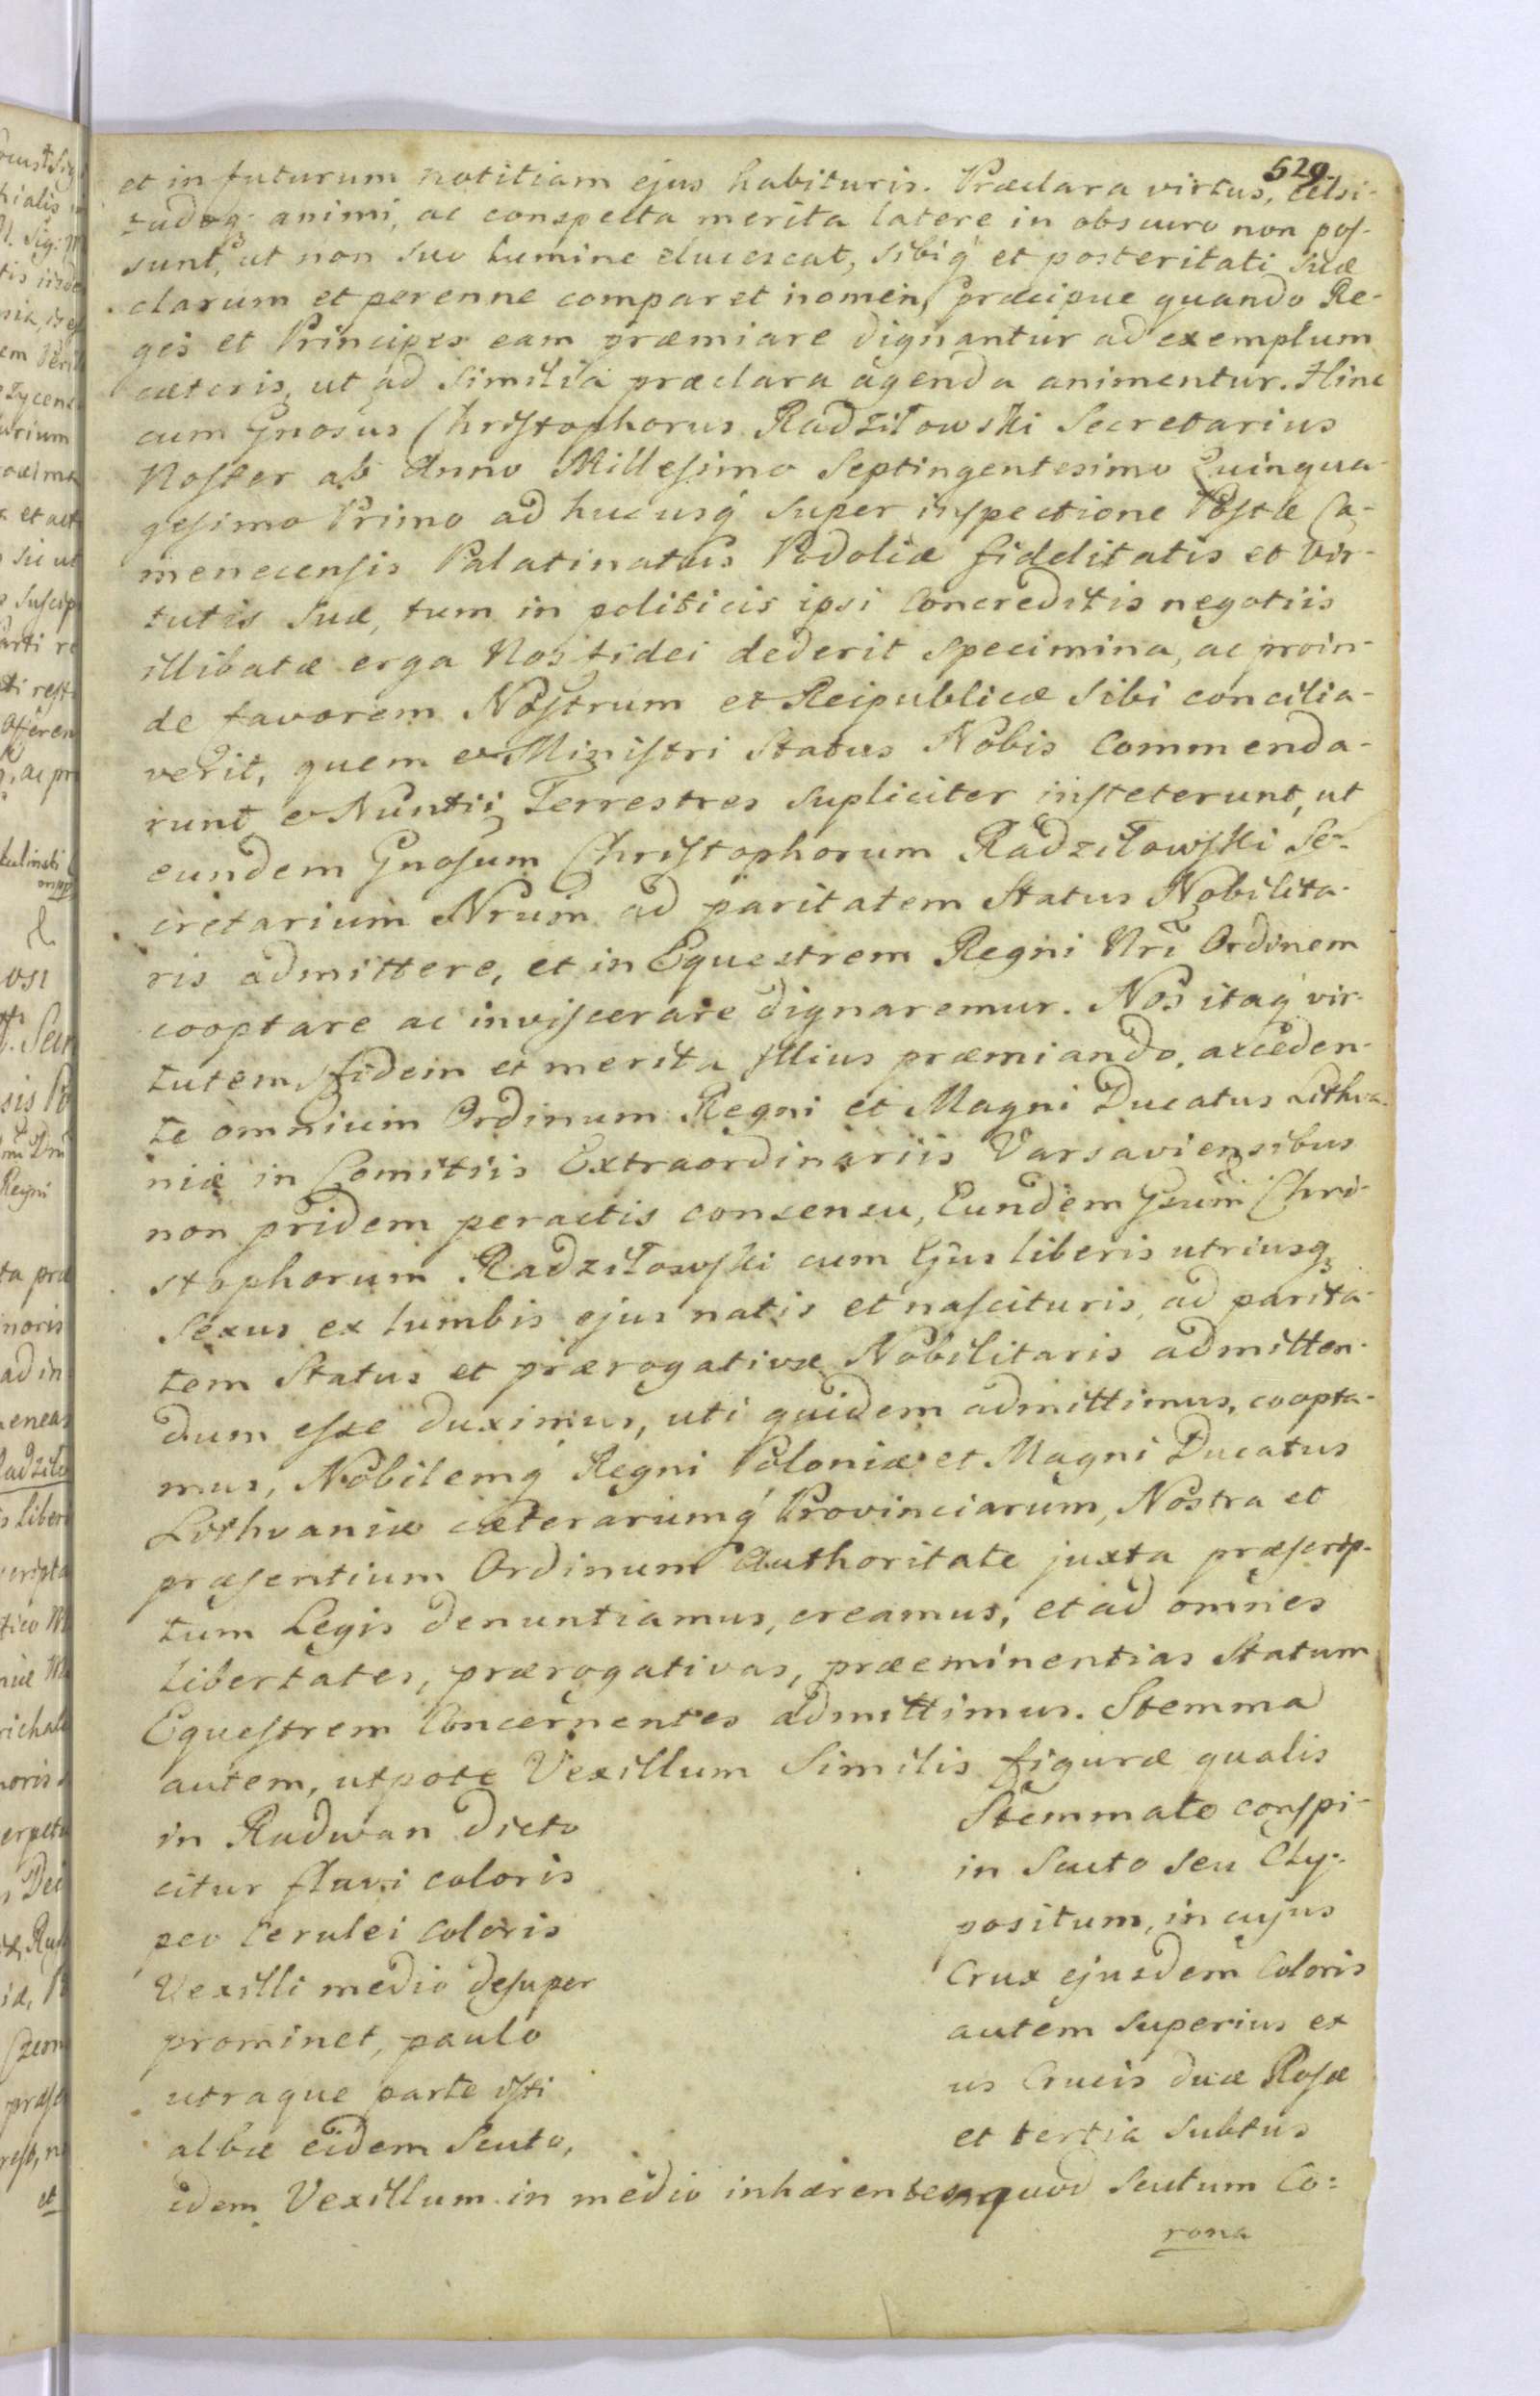 529.
et in futurum notitiam ejus habituris. Præclara virtus, celsi-
tudoq; animi, ac conspecta merita latere in obscuro non pos-
sunt, ut non suo lumine elucescat, sibiq́ et posteritati suæ
clarum et perenne comparet nomen, præcipue quando Re-
ges et Principes eam præmiare dignantur ad exemplum
cæteris, ut ad similia præclara agenda animentur. Hinc
cum Gnosus Christophorus Radziłowski Secretarius
Noster ab Anno Millesimo Septingentesimo Quinqua-
gesimo Primo ad hucusq́ super inspectione Postæ Ca-
menecensis Palatinatus Podoliæ fidelitatis et Vir-
tutis suæ, tum in politicis ipsi Concreditis negotiis
illibatæ erga Nos fidei dederit specimina, ac proin-
de favorem Nostrum et Reipublicæ sibi concilia-
verit, quem et Ministri Status Nobis Commenda-
runt et Nuntii Terrestres supliciter insteterunt, ut
eundem Gnosum Christophorum Radziłowski Se-
cretarium Nrum ad paritatem Status Nobilita-
ris admittere, et in Equestrem Regni Nri Ordinem
cooptare ac inviscerare dignaremur. Nos itaq́ vir-
tutem, fidem et merita Illius præmiando, acceden-
te omnium Ordinum Regni et Magni Ducatus Lithva-
niæ in Comitiis Extraordinariis Varsaviensibus
non pridem peractis consensu, Eundem Gsum Chri-
stophorum Radziłowski cum Ejus liberis utriusq;
Sexus ex lumbis ejus natis et nascituris, ad parita-
tem Status et prærogativæ Nobilitaris admitten-
dum esse duximus, uti quidem admittimus, coopta-
mus, Nobilemq́ Regni Poloniæ et Magni Ducatus
Lithvaniæ cæterarumq́ Provinciarum, Nostra et
præsentium Ordinum Authoritate juxta præscrip-
tum Legis denuntiamus, creamus, et ad omnes
libertates, prærogativas, præeminentias Statum
Equestrem Concernentes admittimus. Stemma
autem, utpote Vexillum Similis figuræ qualis
in Radwan dicto Stemmate conspi-
citur flavi coloris in Scuto seu Cly-
peo Cerulei Coloris positum, in cujus
Vexilli medio desuper Crux ejusdem Coloris
prominet, paulo autem superius ex
utraque parte isti us Crucis duæ Rosæ
albæ eidem Scuto, et tertia subtus
idem Vexillum in medio inhærentes, quod Scutum Co:
rona